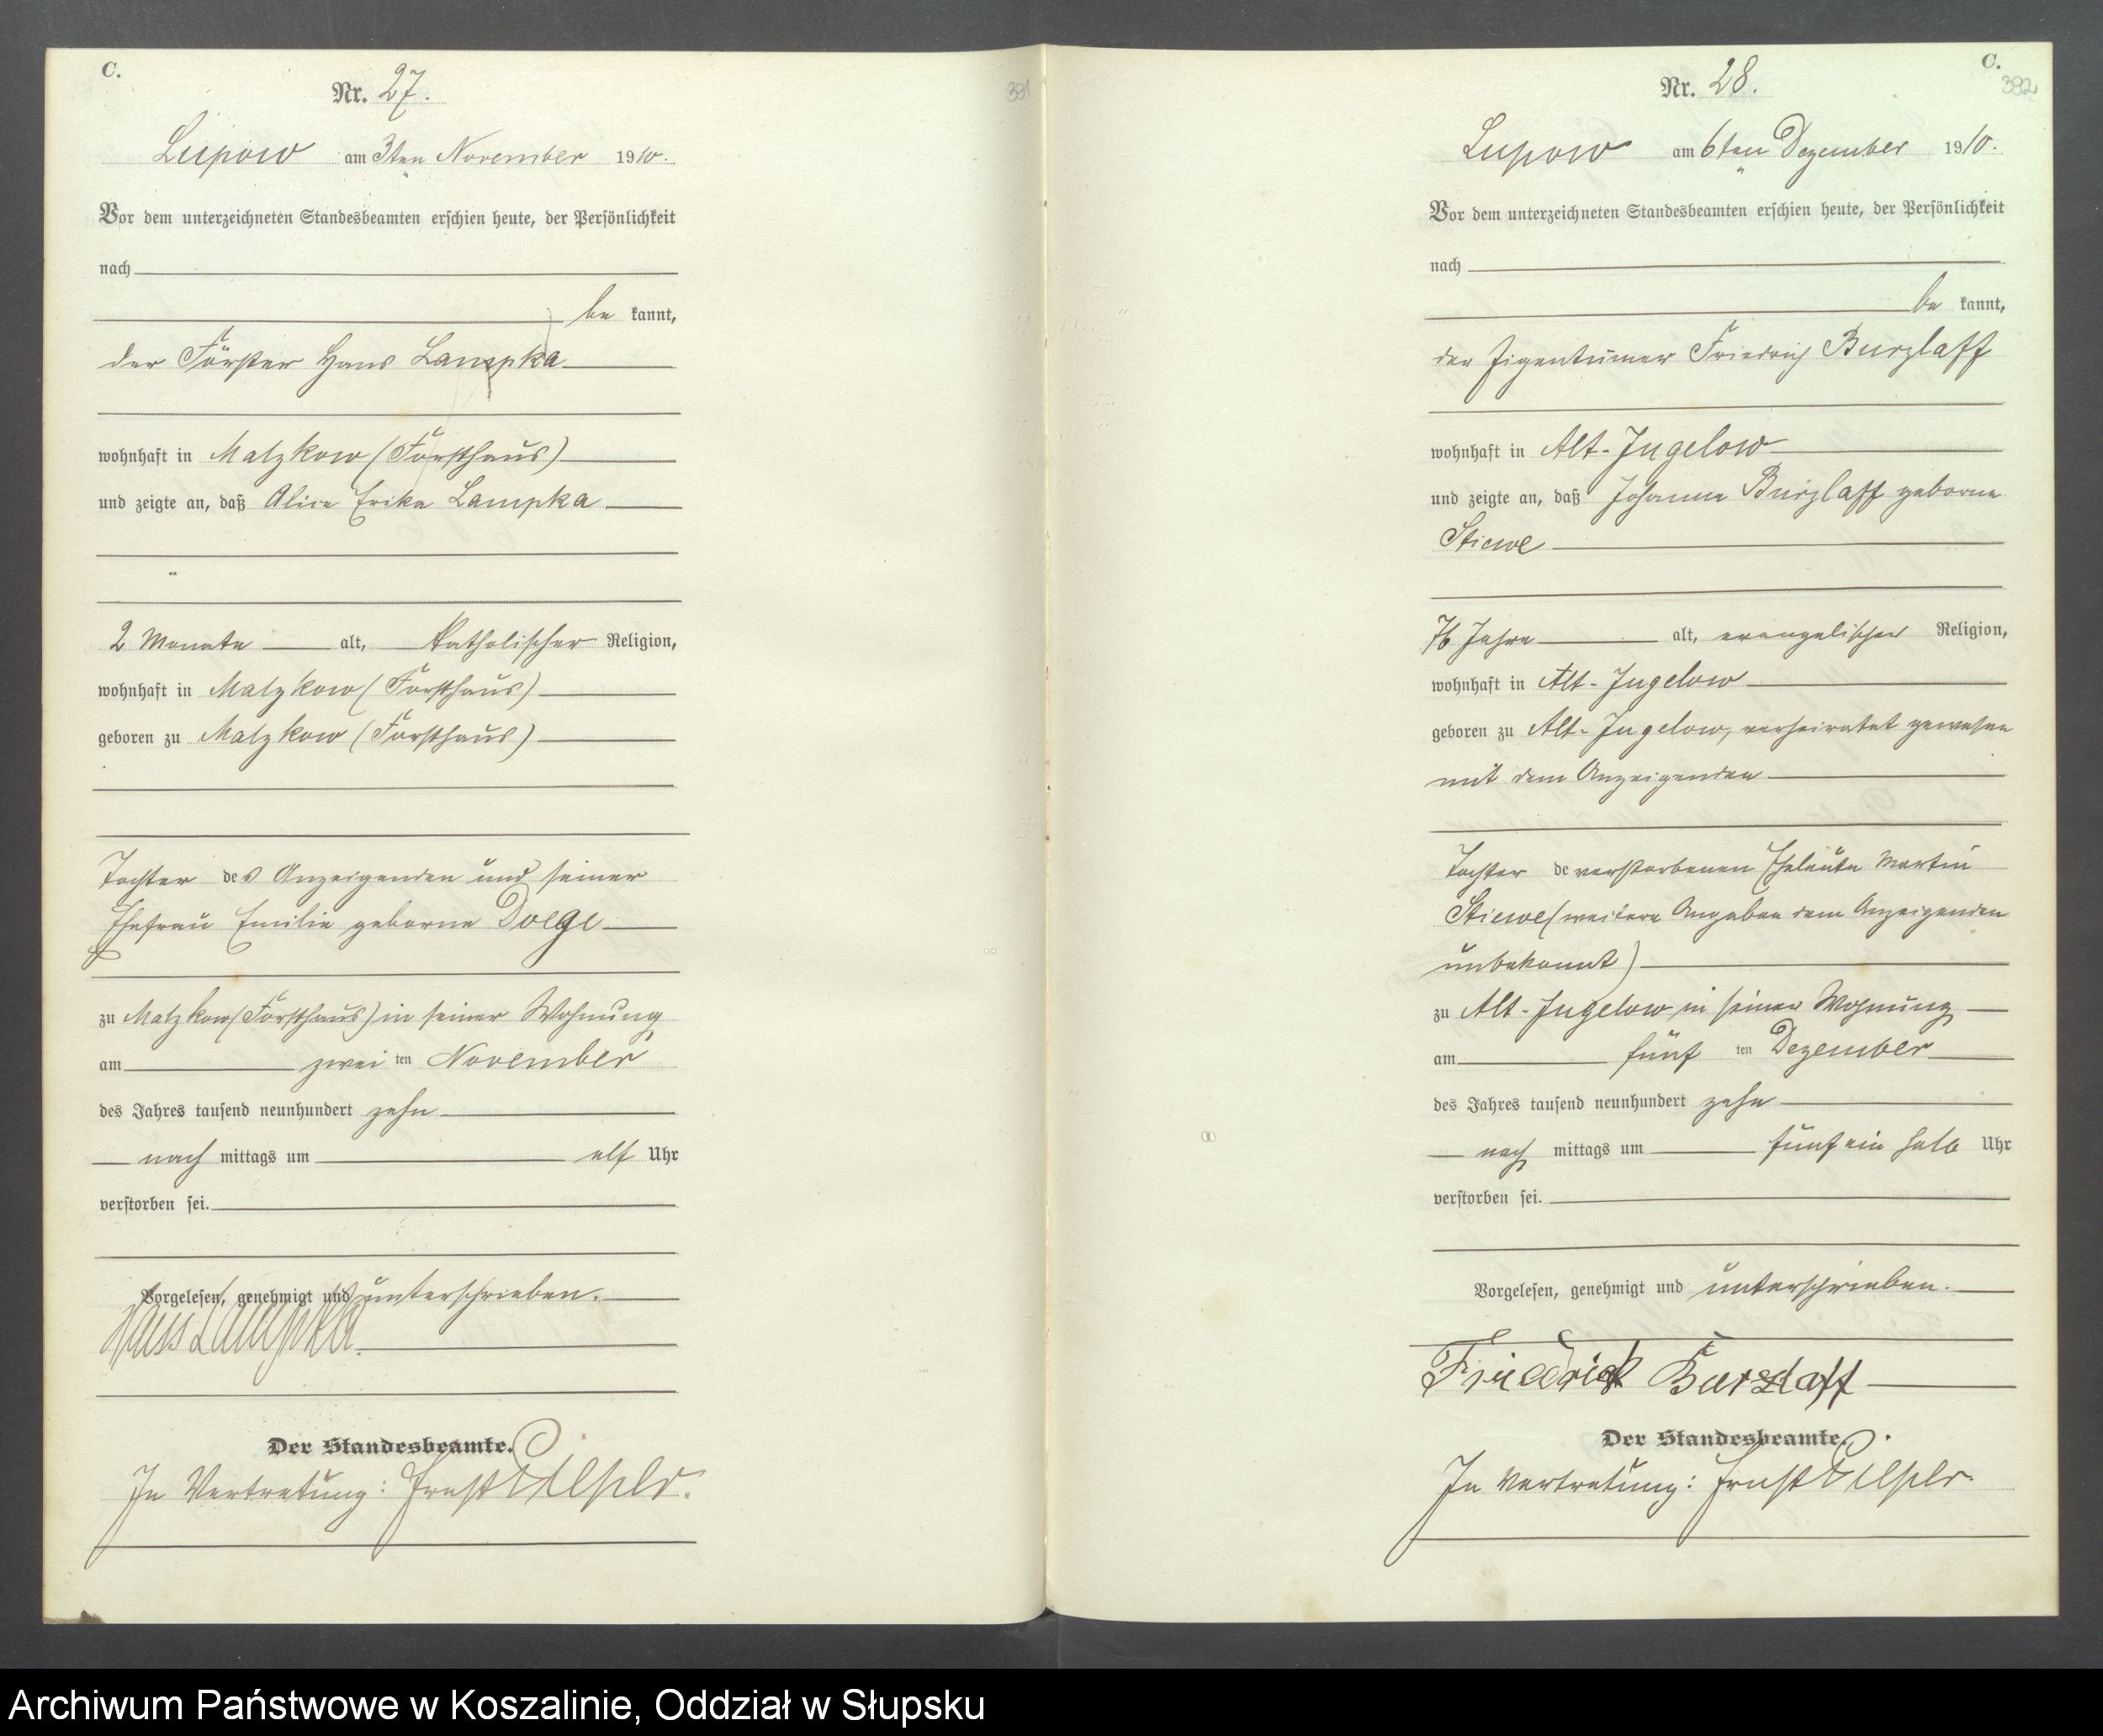 C.
Nr. 27.
391
Lupow am 3ten November 1910.
Vor dem unterzeichneten Standesbeamten erschien heute, der Persönlichkeit
nach
be kannt,
der Förster Hans Lampka
wohnhaft in Malzkow (Forsthaus)
und zeigte an, daß Alice Erika Lampka
2 Monate alt, katholischer Religion,
wohnhaft in Malzkow (Forsthaus)
geboren zu Malzkow (Forsthaus)
Tochter des Anzeigenden und seiner
Ehefrau Emilie geborne Doege
zu Malzkow (Forsthaus) in seiner Wohnung
am zwei ten November
des Jahres tausend neunhundert zehn
nach mittags um elf Uhr
verstorben sei.
Vorgelesen, genehmigt und unterschrieben.
Hans Lampka.
Der Standesbeamte.
In Vertretung: Ernst
C.
Nr. 28.
392
Lupow am 6ten Dezember 1910.
Vor dem unterzeichneten Standesbeamten erschien heute, der Persönlichkeit
nach
be kannt,
der Eigentümer Friedrich Burzlaff
wohnhaft in Alt-Jugelow
und zeigte an, daß Johanne Burzlaff geborne
Stiewe
76 Jahre alt, evangelischer Religion,
wohnhaft in Alt-Jugelow
geboren zu Alt-Jugelow, verheiratet gewesen
mit dem Anzeigenden
Tochter de verstorbenen Eheleute Martin
Stiewe (weitere Angaben dem Anzeigenden
unbekannt)
zu Alt-Jugelow in seiner Wohnung
am fünf ten Dezember
des Jahres tausend neunhundert zehn
nach mittags um fünf ein halb Uhr
verstorben sei.
Vorgelesen, genehmigt und unterschrieben.
Friedrich Burzlaff
Der Standesbeamte.
In Vertretung: Ernst
Archiwum Państwowe w Koszalinie, Oddział w Słupsku